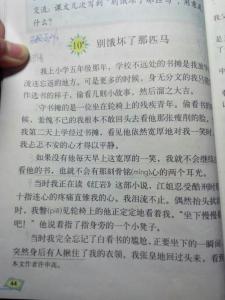 交流：课文几次写到“别饿坏了
什么？
10 别饿坏了那匹马
我上小学五年级那年，学校不远处的书摊是我放学
流连忘返的地方。可是更多的时候，身无分文的我只能
作选书的样子，偷看几则小故事，然后溜之大吉。
守书摊的是一位坐在轮椅上的残疾青年。偷看书的
候，羞愧不已的我根本不敢回头去看他那张瘦削的脸。
我第二天上学经过书摊，看见他依然宽厚地对我一笑时，
我忐忑不安的心才得以平静。
如果没有他每天早上这宽厚的一笑，我就不会继续
看他的书，也就不会有那刻骨铭(míng)心的两个耳光。
当时我正在读《红岩》这部小说，江姐忍受酷刑时
十指连心的疼痛直锥我的心。我泪流不止。偶然抬头
时，我瞥(piē)见轮椅上的他正定定地看着我。“坐下慢慢
吧！”他说着指了指身旁的一个小凳子。
当时我完全忘记了白看书的尴尬，正要坐下的一瞬间
突然身后有人揪住了我的衣领，我张皇地回过头来，看到
本文作者许申高。
44